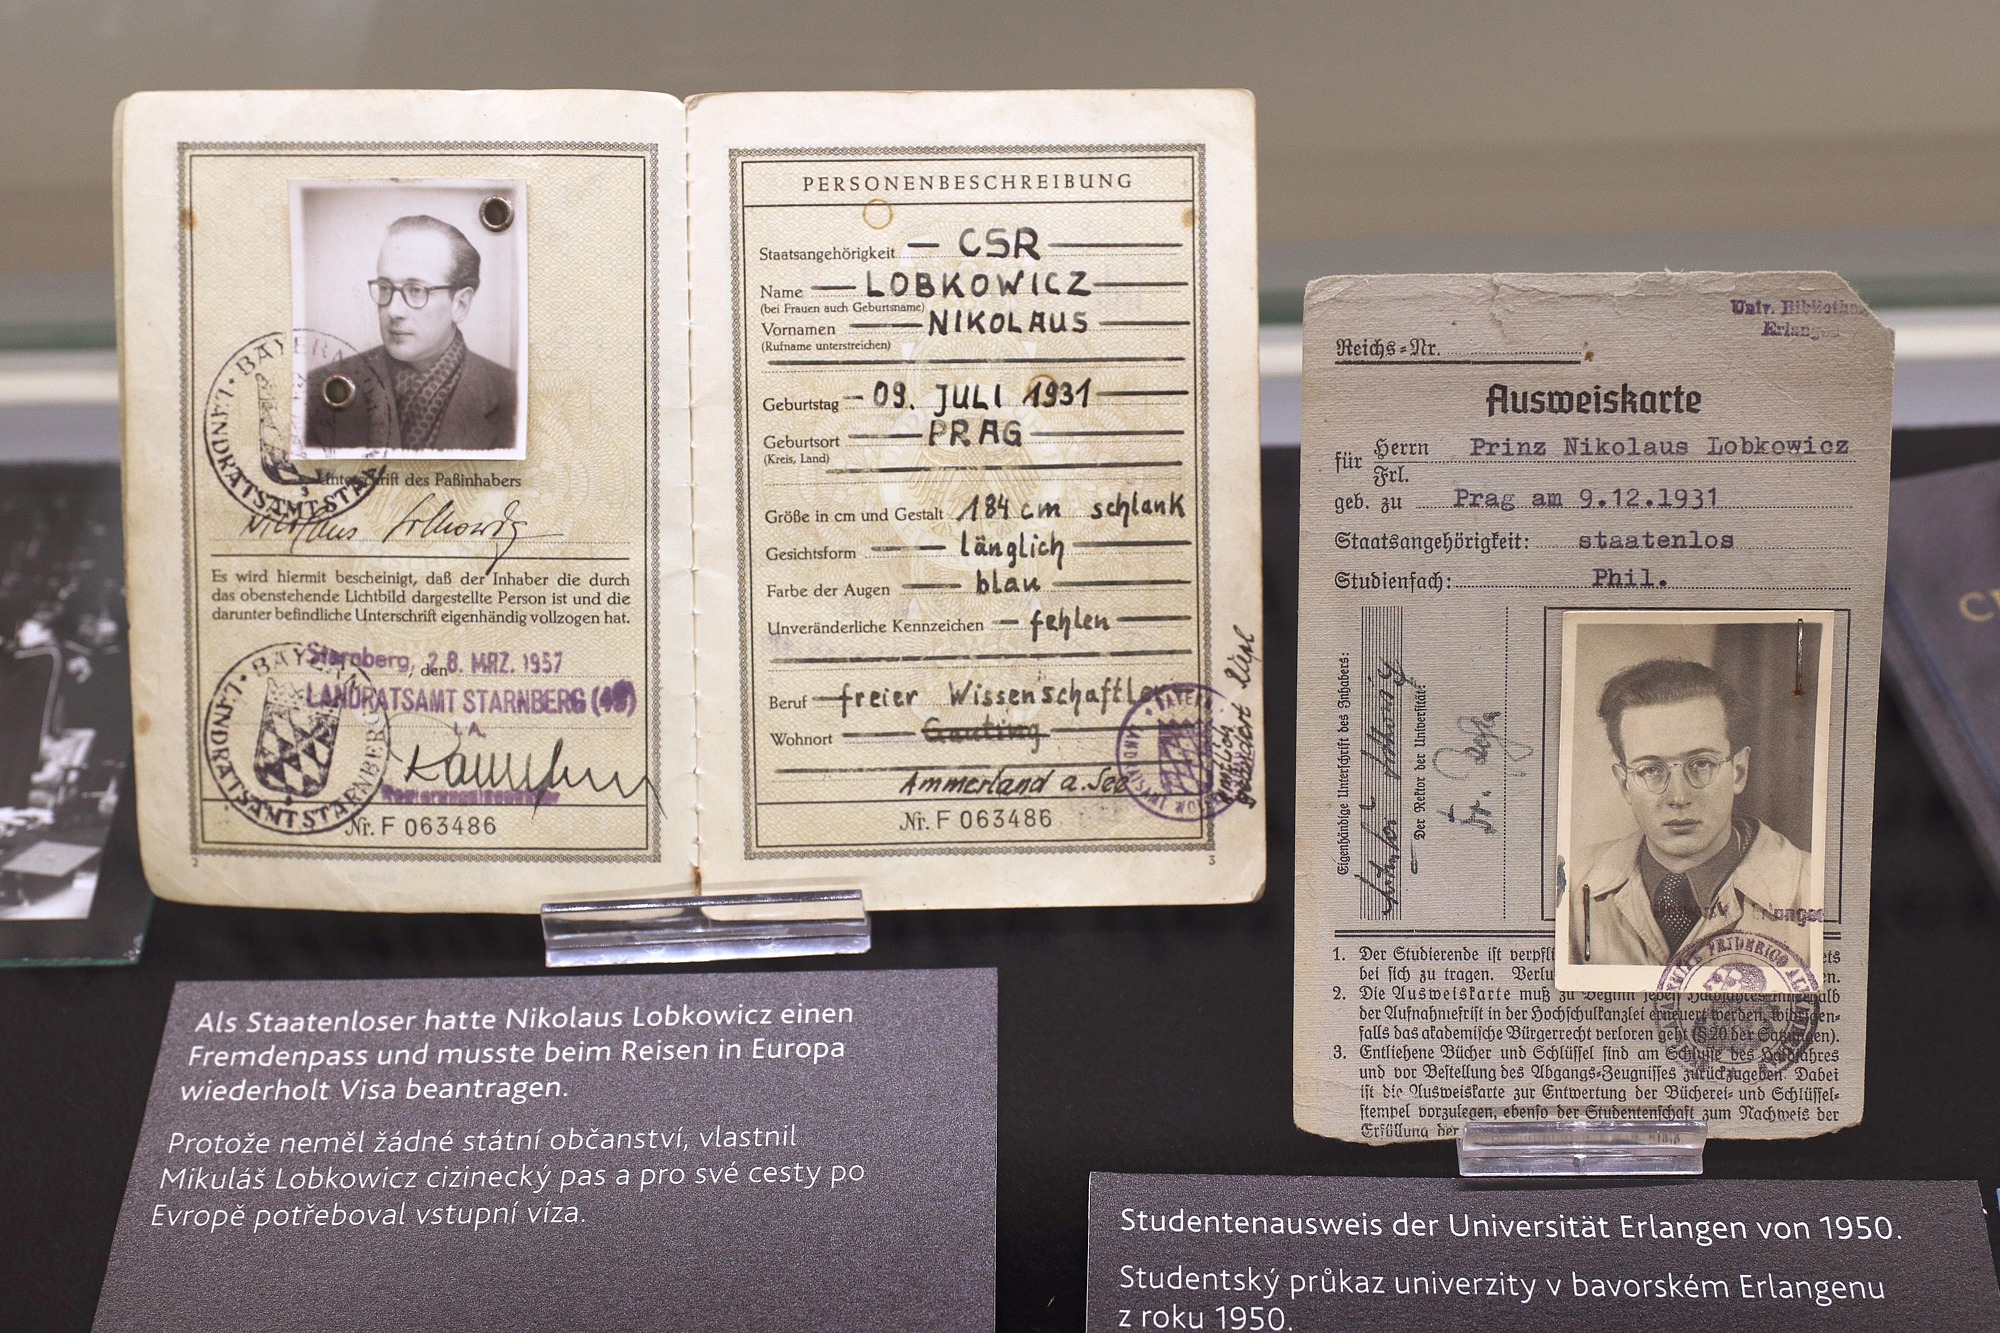 BAYERN
LANDRATSAMT STA
Unterschrift des Paßinhabers
Nikolaus Lobkowicz
Es wird hiermit bescheinigt, daß der Inhaber die durch
das obenstehende Lichtbild dargestellte Person ist und die
darunter befindliche Unterschrift eigenhändig vollzogen hat.
Starnberg, den 28. MRZ. 1957
LANDRATSAMT STARNBERG
I. A.
BAYERN
LANDRATSAMT STARNBERG
Nr. F 063486
2
PERSONENBESCHREIBUNG
Staatsangehörigkeit CSR
Name LOBKOWICZ
(bei Frauen auch Geburtsname)
Vornamen NIKOLAUS
(Rufname unterstreichen)
Geburtstag 09. JULI 1931
Geburtsort PRAG
(Kreis, Land)
Größe in cm und Gestalt 184 cm schlank
Gesichtsform länglich
Farbe der Augen blau
Unveränderliche Kennzeichen fehlen
Beruf freier Wissenschaftler
Wohnort Gauting
Ammerland a. See
Amtlich
geändert
BAYERN
Nr. F 063486
3
Univ. Biblioth
Erlangen
Reichs-Nr.
Ausweiskarte
für Herrn Prinz Nikolaus Lobkowicz
Frl.
geb. zu Prag am 9.12.1931
Staatsangehörigkeit: staatenlos
Studienfach: Phil.
Eigenhändige Unterschrift des Inhabers:
Nikolaus Lobkowicz
Der Rektor der Universität:
Dr.
Erlangen
FRIDERICO AL
1. Der Studierende ist verpfl ets
bei sich zu tragen. Verlu en.
2. Die Ausweiskarte muß zu Beginn jeden Halbjahres innerhalb
der Aufnahmefrist in der Hochschulkanzlei erneuert werden, widrigen-
falls das akademische Bürgerrecht verloren geht (§ 20 der Satzungen).
3. Entliehene Bücher und Schlüssel sind am Schlusse des Halbjahres
und vor Bestellung des Abgangs-Zeugnisses zurückzugeben. Dabei
ist die Ausweiskarte zur Entwertung der Bücherei- und Schlüssel-
stempel vorzulegen, ebenso der Studentenschaft zum Nachweis der
Erfüllung der
Als Staatenloser hatte Nikolaus Lobkowicz einen
Fremdenpass und musste beim Reisen in Europa
wiederholt Visa beantragen.
Protože neměl žádné státní občanství, vlastnil
Mikuláš Lobkowicz cizinecký pas a pro své cesty po
Evropě potřeboval vstupní víza.
Studentenausweis der Universität Erlangen von 1950.
Studentský průkaz univerzity v bavorském Erlangenu
z roku 1950.